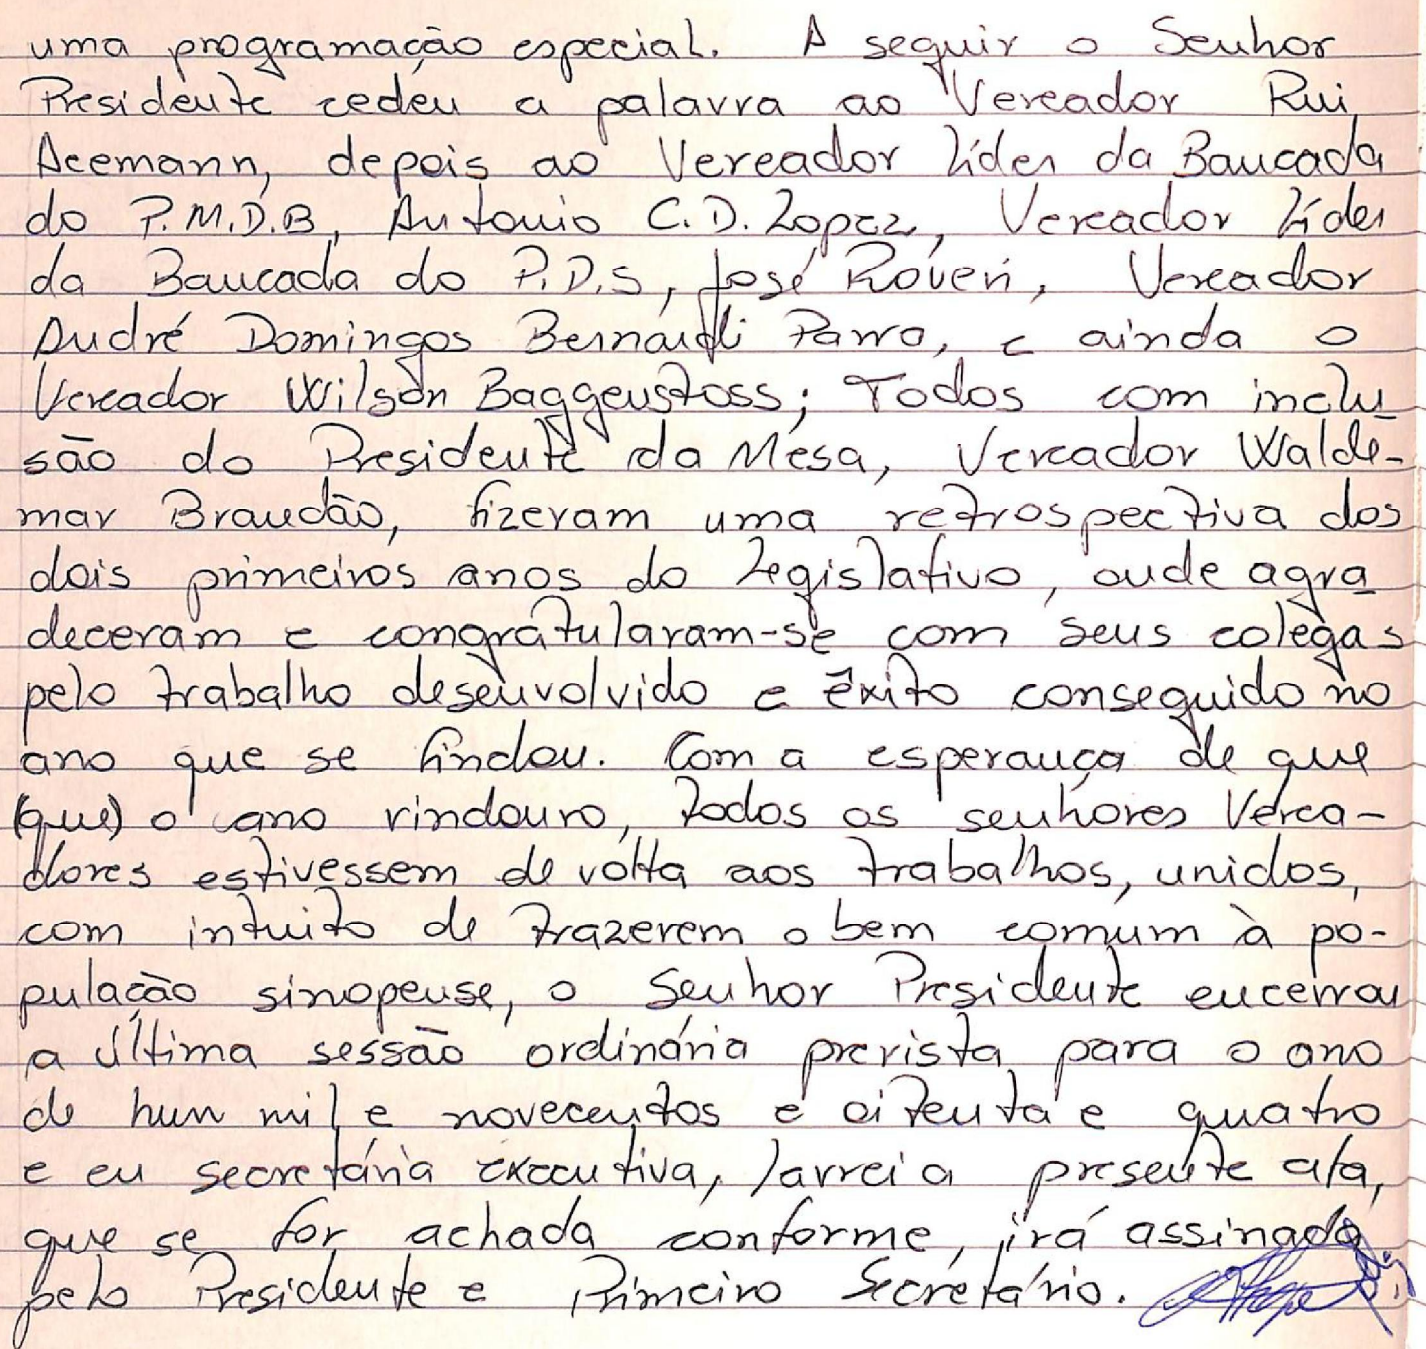 uma programação especial. A seguir o Senhor
Presidente cedeu a palavra ao Vereador Rui
Acemann, depois ao Vereador Líder da Bancada
do P.M.D.B, Antonio C.D. Lopez, Vereador Líder
da Bancada do P.D.S, José Roveri, Vereador
André Domingos Bernardi Parra, e ainda o
Vereador Wilson Baggenstoss; Todos com inclu
são do Presidente da Mesa, Vereador Walde-
mar Brandão, fizeram uma retrospectiva dos
dois primeiros anos do Legislativo, onde agra
deceram e congratularam-se com seus colegas
pelo trabalho desenvolvido e êxito conseguido no
ano que se findou. Com a esperança de que
(que) o ano vindouro, todos os senhores Verea-
dores estivessem de volta aos trabalhos, unidos,
com intuito de trazerem o bem comum à po-
pulação sinopense, o Senhor Presidente encerrou
a última sessão ordinária prevista para o ano
de hun mil e novecentos e oitenta e quatro
e eu secretária executiva, lavrei a presente ata,
que se for achada conforme, irá assinada
pelo Presidente e Primeiro Secretário.